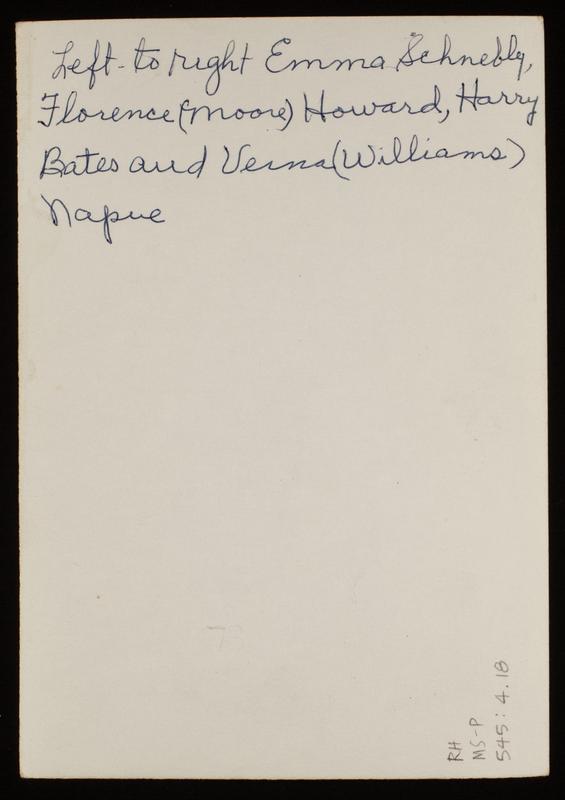 Left-to right Emma Schnebly,
Florence (Moore) Howard, Harry
Bates and Verna (Williams)
Napue
RH
MS-P
545: 4.18